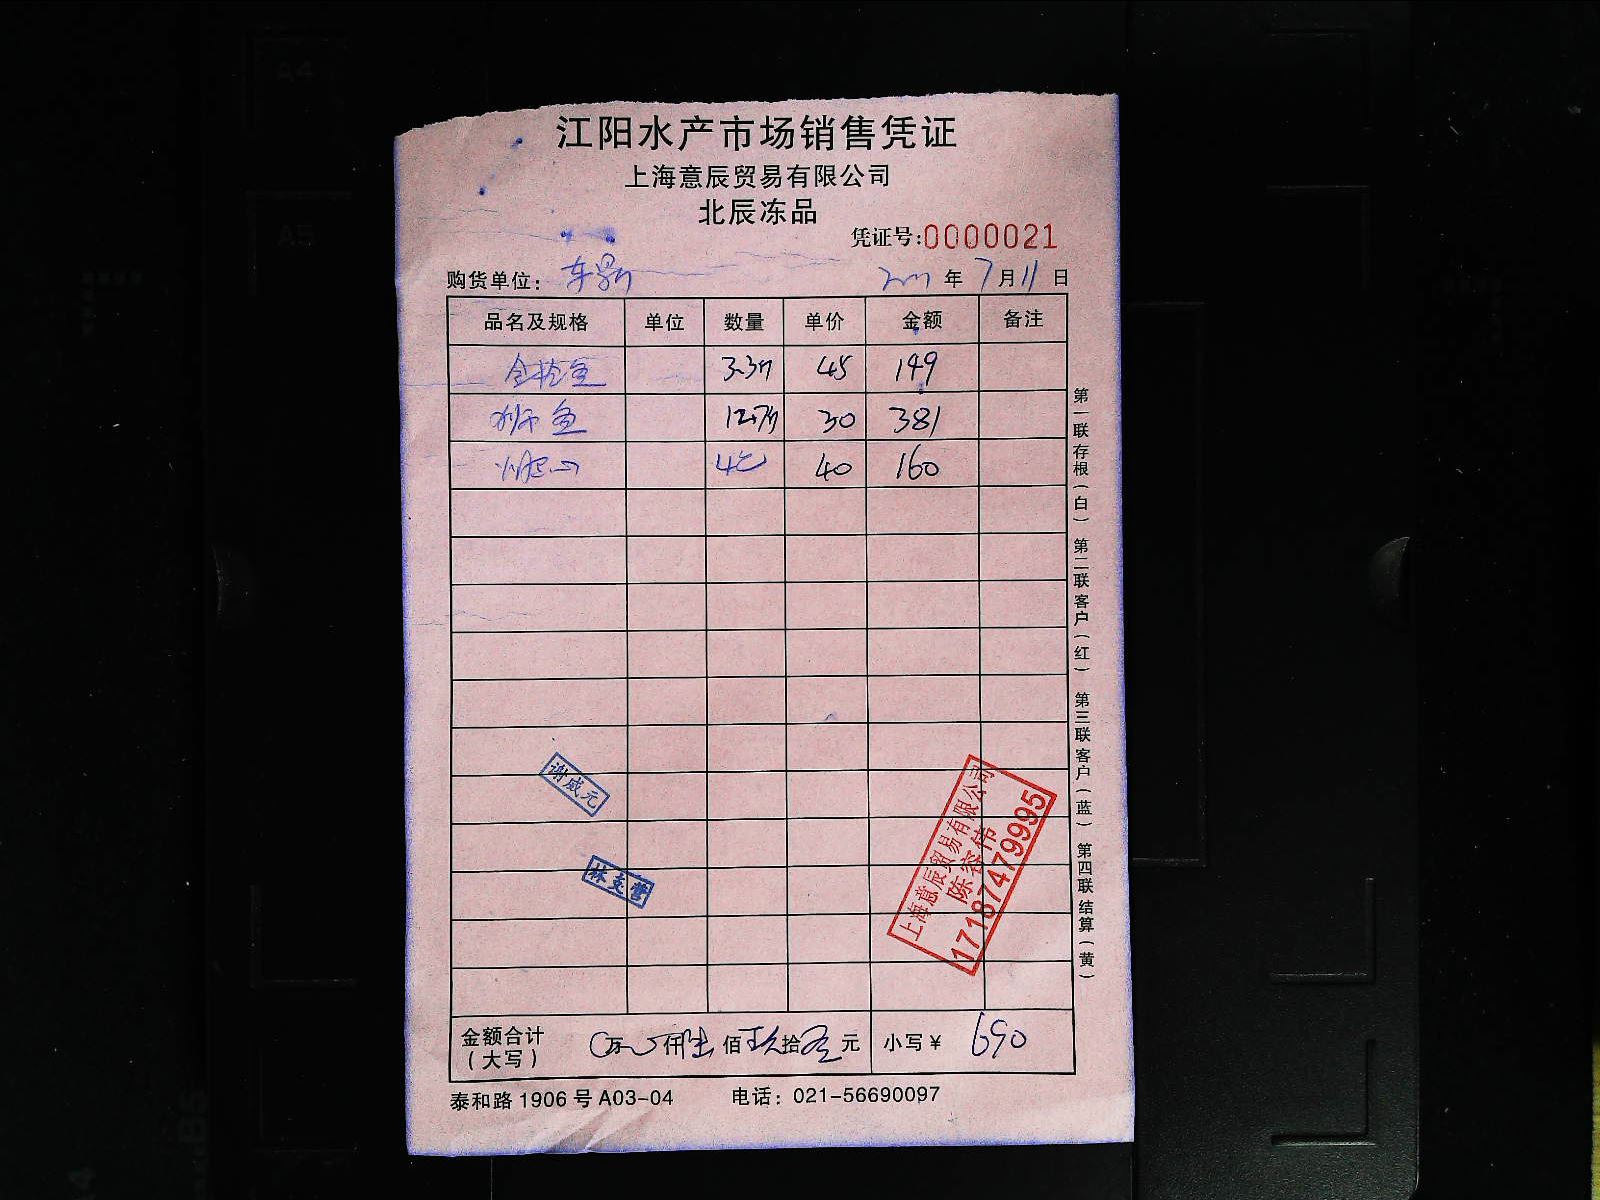 江阳水产市场销售凭证
上海意辰贸易有限公司
北辰冻品
凭证号:0000021
购货单位: 年 7月11日
品名及规格 单位 数量 单价 金额 备注
金枪鱼 3.3 45 149
鱼 12.7 30 381
40 160
谢咸元
林支营
上海意辰贸易有限公司
陈容伟
17187479995
金额合计 万 仟 佰玖拾 元 小写¥ 690
(大写)
泰和路1906号A03-04 电话: 021-56690097
第一联存根(白) 第二联客户(红) 第三联客户(蓝) 第四联结算(黄)